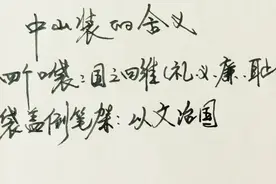 中山装的含义
四个口袋：国之四维（礼、义、廉、耻
袋盖倒笔架：以文治国